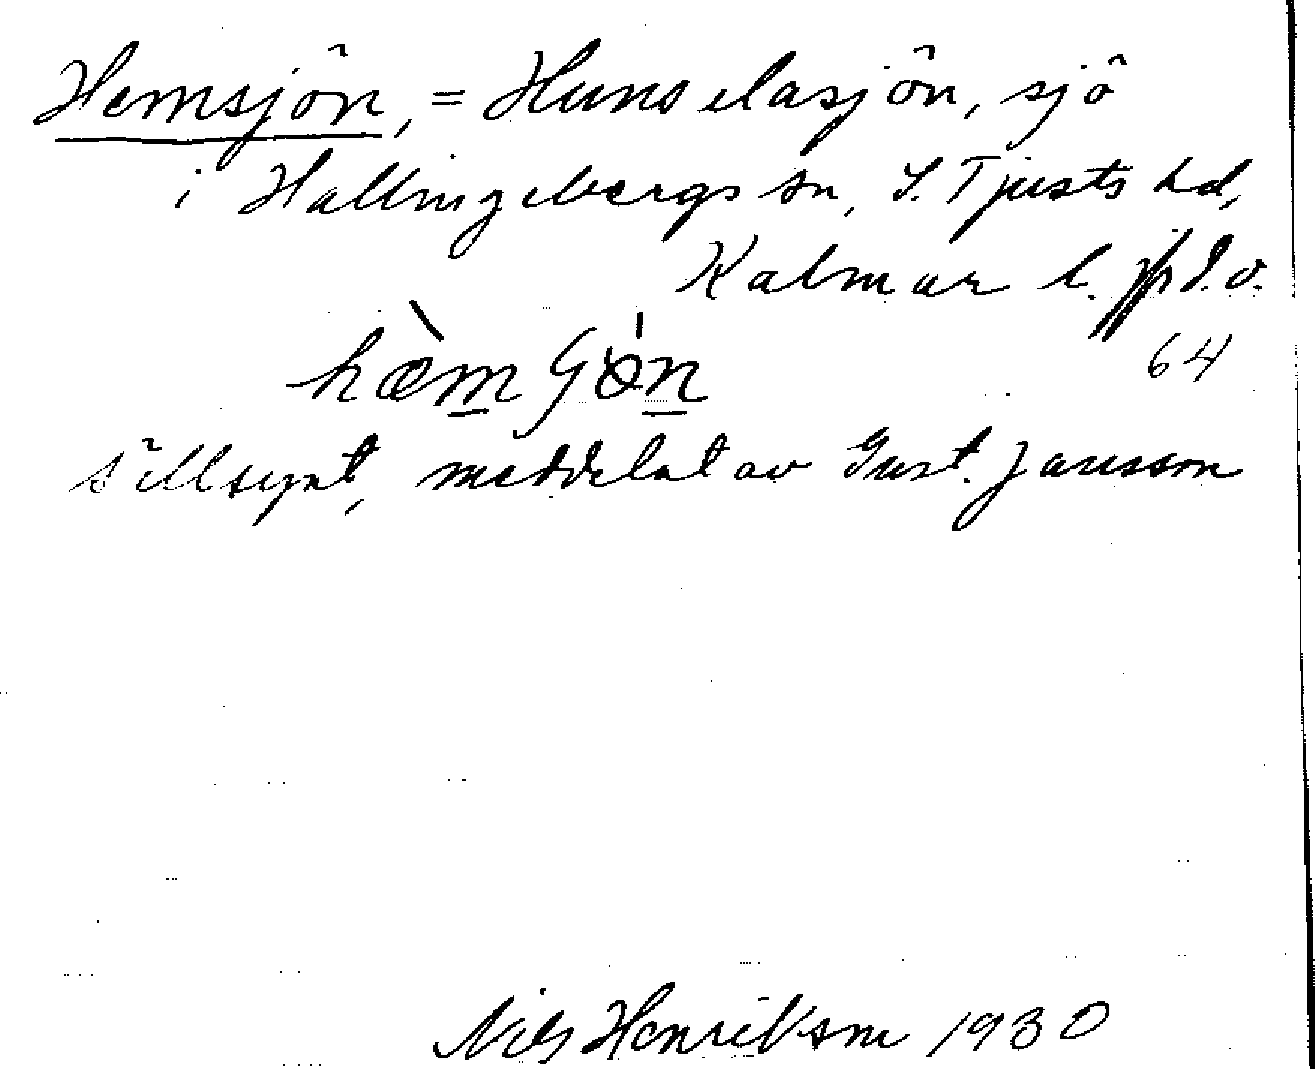 Hemsjön, = Hunselasjön, sjö
i Hallingebergs sn, S. Tjusts hd,
Kalmar l.
64
hæ̀m
sällsynt, meddelat av Gust. Jansson
Nils Henrikson 1930